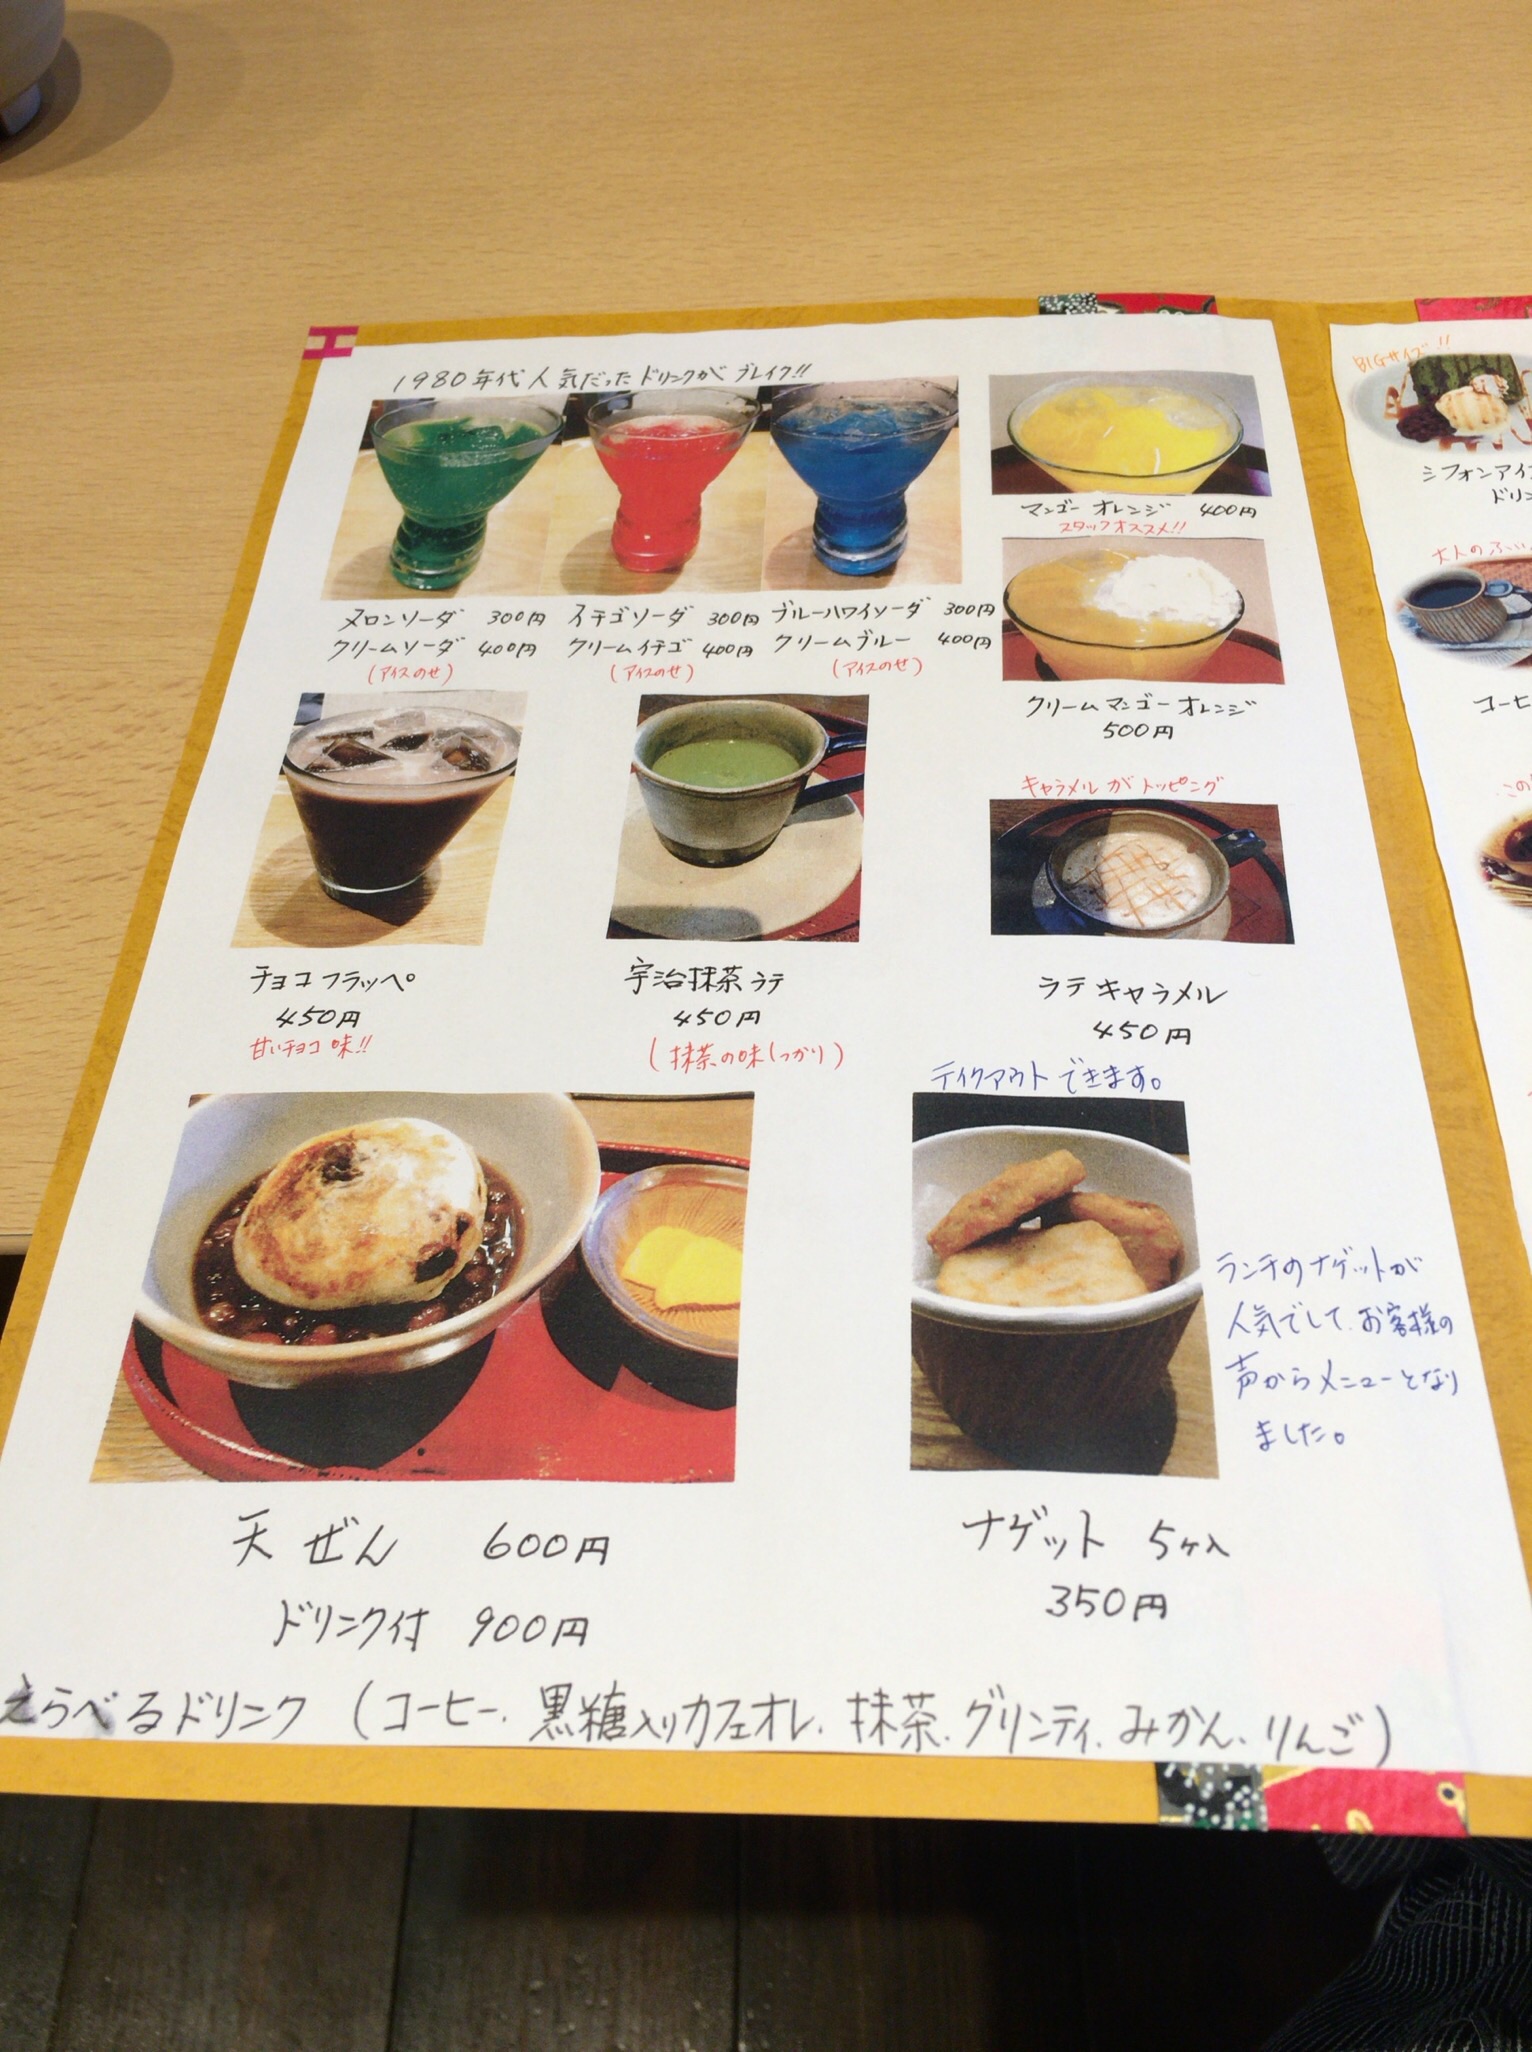 1980年代人気だったドリンクがブレイク!!
メロンソーダ 300円
クリームソーダ 400円
(アイスのせ)
イチゴソーダ 300円
クリームイチゴ 400円
(アイスのせ)
ブルーハワイソーダ 300円
クリームブルー 400円
(アイスのせ)
マンゴーオレンジ 400円
スタッフオススメ!!
クリームマンゴーオレンジ
500円
チョコフラッペ
450円
甘いチョコ味!!
宇治抹茶ラテ
450円
(抹茶の味しっかり)
キャラメルがトッピング
ラテキャラメル
450円
テイクアウトできます。
ランチのナゲットが
人気でして、お客様の
声からメニューとなり
ました。
天ぜん 600円
ドリンク付 900円
ナゲット 5ヶ入
350円
えらべるドリンク (コーヒー、黒糖入りカフェオレ、抹茶、グリンティ、みかん、りんご)
BIGサイズ!!
シフォンアイ
ドリン
大人のふ
コーヒ
この